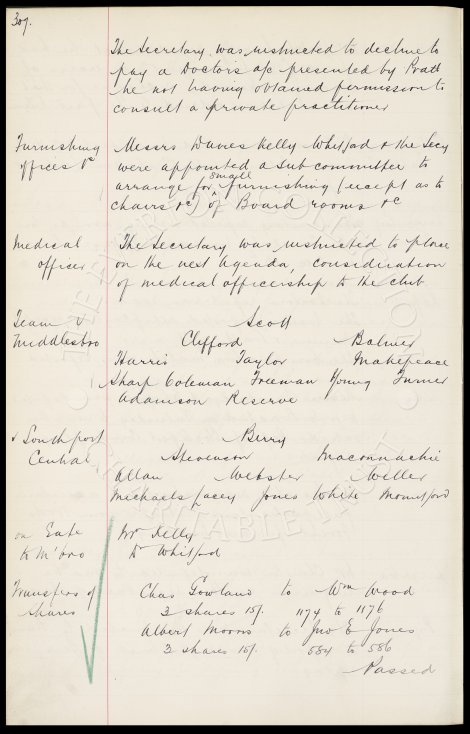 307.
The Secretary was instructed to decline to
pay a Doctors a/c presented by Pratt
he not having obtained permission to
consult a private practitioner
Furnishing Messrs Davies Kelly Whitford & the Secy
offices &c were appointed a sub committee to
arrange for small furnishing (except as to
chairs &c) of Board rooms &c
Medical The Secretary was instructed to place
officer on the next Agenda, consideration
of medical officership to the club
Team v Scott
Middlesbro Clifford Balmer
Harris Taylor Makepeace
Sharp Coleman Freeman Young Turner
Adamson Reserve
v Southport Berry
Central Stevenson Maconnachie
Allan Webster
Michaels Lacey Jones White Mountford
on Gate Mr Kelly
to M'bro Dr Whitford
Transfers of Chas Gowland to Wm Wood
shares 3 shares 15/- 1174 to 1176
Albert Morris to Jno E Jones
3 shares 15/- 584 to 586
Passed